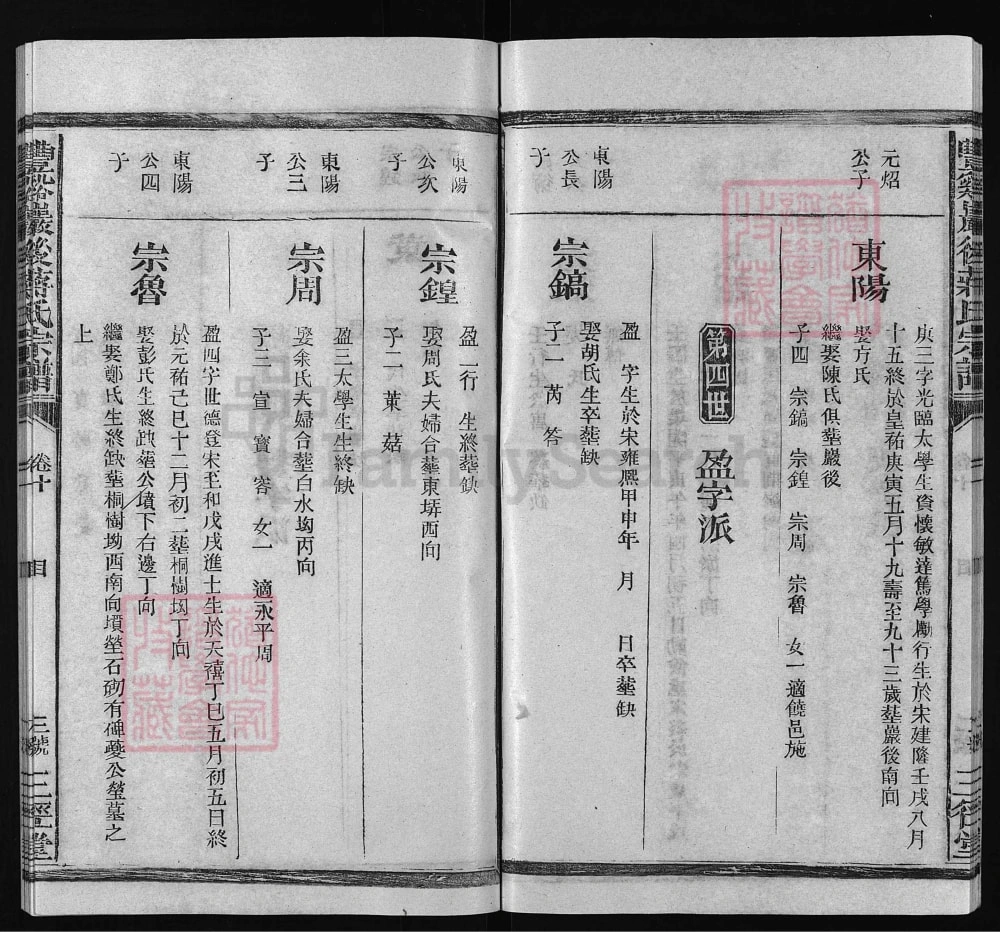 元炤
公子
東陽
庚三字光臨太學生資懷敏達篤學勵行生於宋建隆壬戌八月
十五終於皇祐庚寅五月十九壽至九十三歲塟巖後南向
娶方氏
繼娶陳氏俱塟巖後
子四 宗鎬 宗鍠 宗周 宗魯 女一適饒邑施
第四世
盈字派
東陽
公長
子
宗鎬
盈 字生於宋雍熈甲申年 月 日卒塟缺
娶胡氏生卒塟缺
子二 芮 答
東陽
公次
子
宗鍠
盈二行 生終塟缺
娶周氏夫婦合塟東塝西向
子二 菄 菇
東陽
公三
子
宗周
盈三太學生生終缺
娶余氏夫婦合塟白水坳丙向
子三 宣 寶 容 女一 適永平周
東陽
公四
子
宗魯
盈四字世德登宋至和戊戌進士生於天禧丁巳五月初五日終
於元祐己巳十二月初二塟桐樹坳丁向
娶彭氏生終缺塟公墳下右邊丁向
繼娶鄭氏生終缺塟桐樹坳西南向墳塋石砌有碑夔公塋墓之
上
卷十
三號
三徑堂